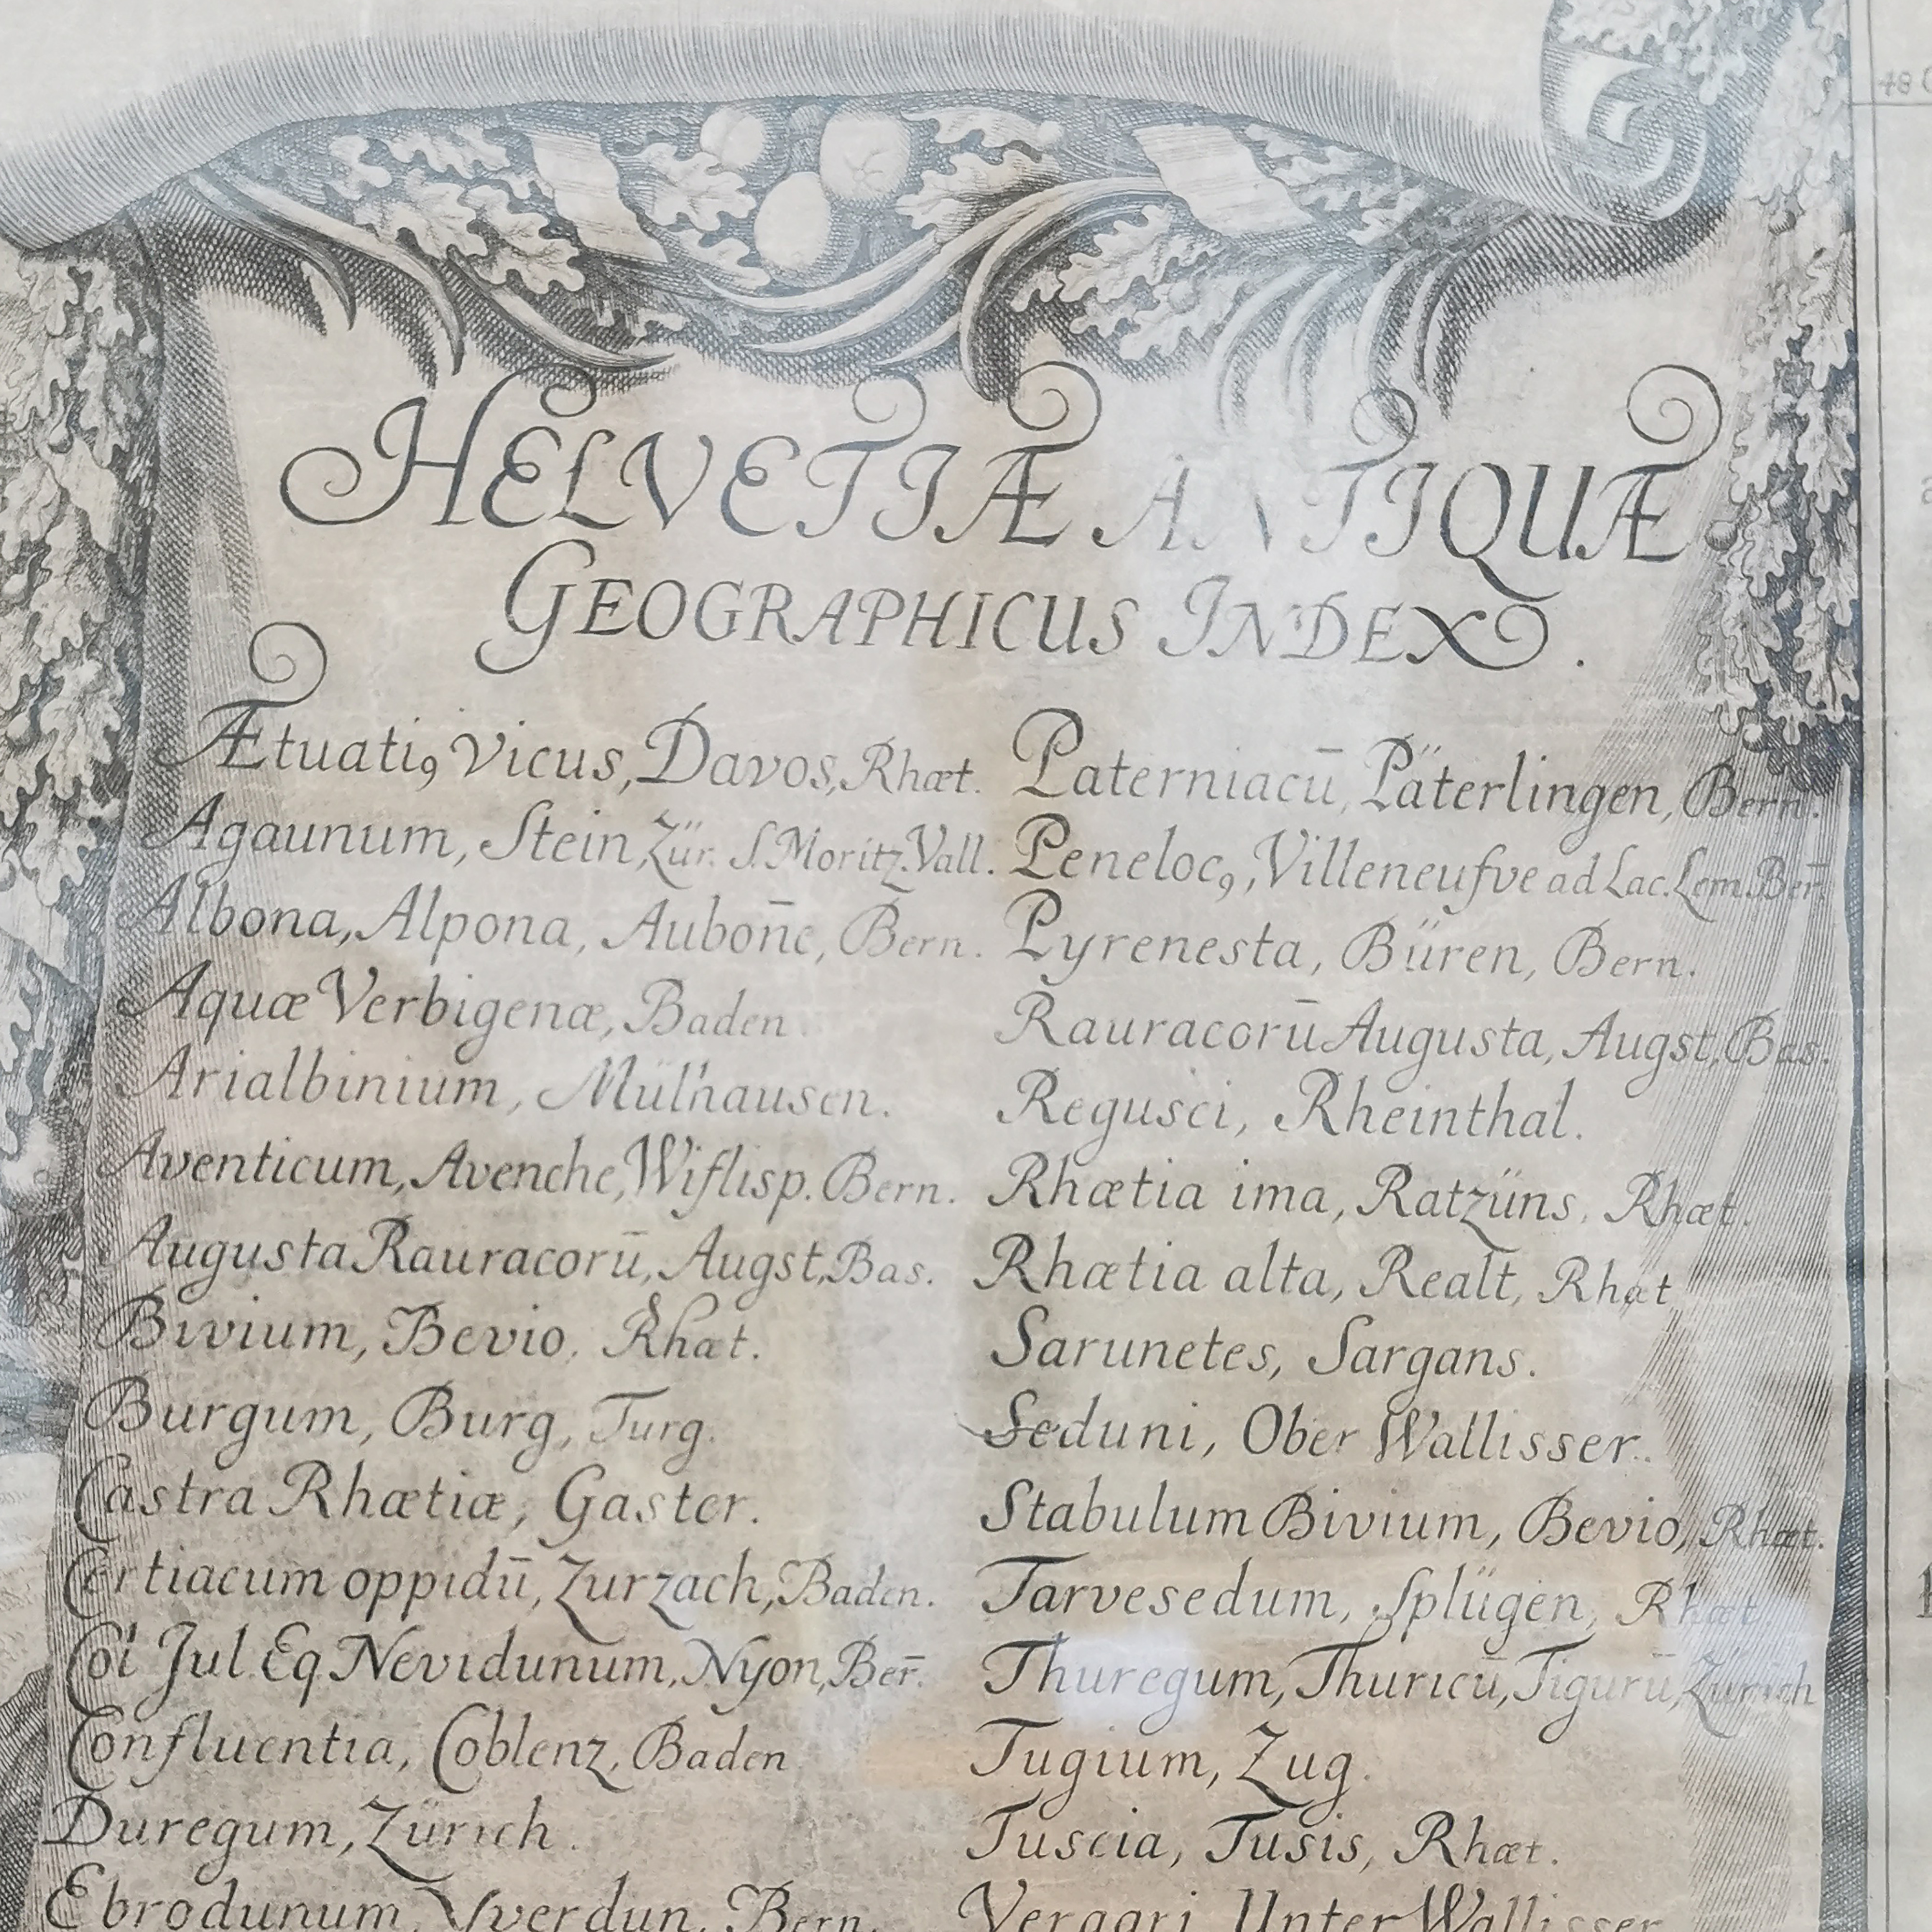 HELVETIÆ ANTIQUÆ
GEOGRAPHICUS INDEX.
Ætuatiꝰ Vicus, Davos, Rhæt.
Agaunum, Stein, Zür. S. Moritz. Vall.
Albona, Alpona, Aubon̄e, Bern.
Aquæ Verbigenæ, Baden.
Arialbinium, Mülhausen.
Aventicum, Avenche, Wiflisp. Bern.
Augusta Rauracorū, Augst, Bas.
Bivium, Bevio, Rhæt.
Burgum, Burg, Turg.
Castra Rhætiæ, Gaster.
Certiacum oppidū, Zurzach, Baden.
Col Jul. Eq. Nevidunum, Nyon, Ber̄.
Confluentia, Coblenz, Baden
Duregum, Zürich.
Ebrodunum, Yverdun, Bern.
Paterniacū, Päterlingen, Bern.
Penelocꝰ, Villeneufve ad Lac. Lem. Ber̄.
Pyrenesta, Büren, Bern.
Rauracorū Augusta, Augst, Bas.
Regusci, Rheinthal.
Rhætia ima, Ratzüns, Rhæt.
Rhætia alta, Realt, Rhæt
Sarunetes, Sargans.
Seduni, Ober Wallisser.
Stabulum Bivium, Bevio, Rhæt.
Tarvesedum, Splügen, Rhæt
Thuregum, Thuricū, Tigurū, Zürich
Tugium, Zug.
Tuscia, Tusis, Rhæt.
Veragri, Unter Wallisser
48